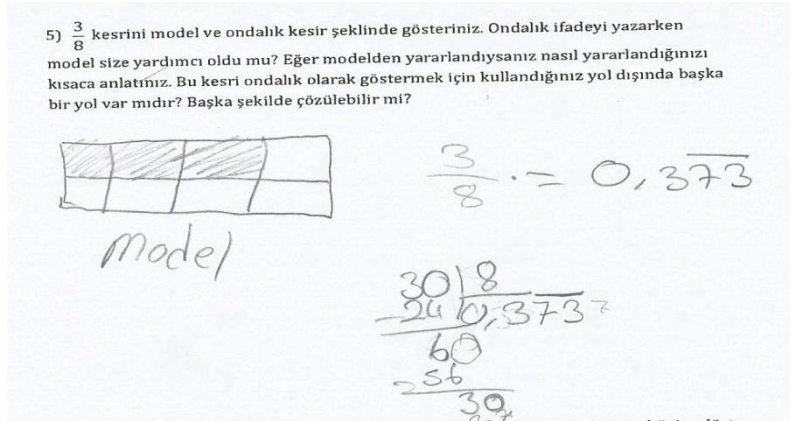 5) 3/8 kesrini model ve ondalık kesir şeklinde gösteriniz. Ondalık ifadeyi yazarken
model size yardımcı oldu mu? Eğer modelden yararlandıysanız nasıl yararlandığınızı
kısaca anlatınız. Bu kesri ondalık olarak göstermek için kullandığınız yol dışında başka
bir yol var mıdır? Başka şekilde çözülebilir mi?
3/8 = 0,373
model
30 | 8
- 24 0,373
60
- 56
30